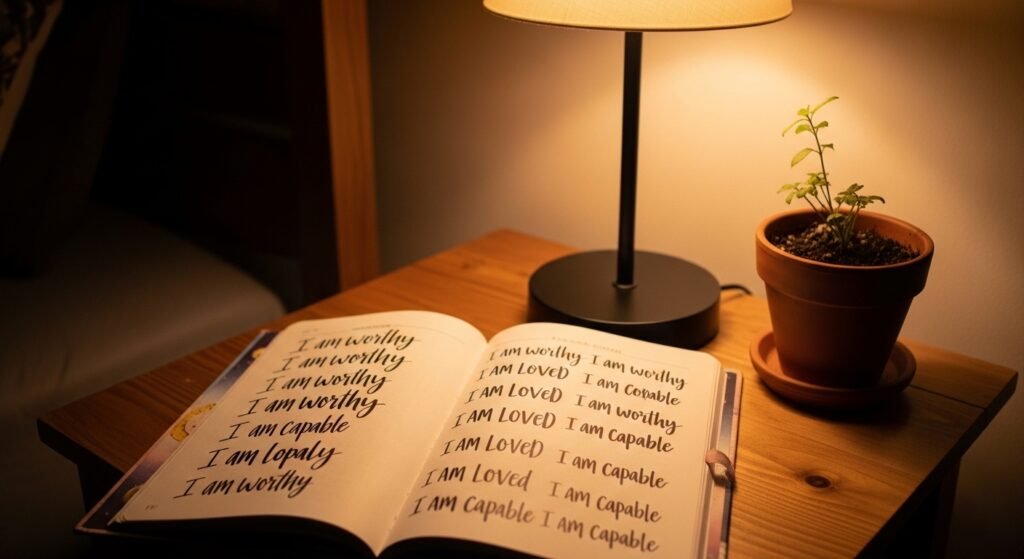 I am worthy
I am worthy
I am worthy
I am worthy
I am capable
I am lopaly
I am worthy
I am worthy I am worthy
I AM LOVED I am
I AM LOVED I am worthy
I AM LOVED I am capable
I AM LOVED I am capable
I AM LOVED I am capable
I AM Capable I am capable